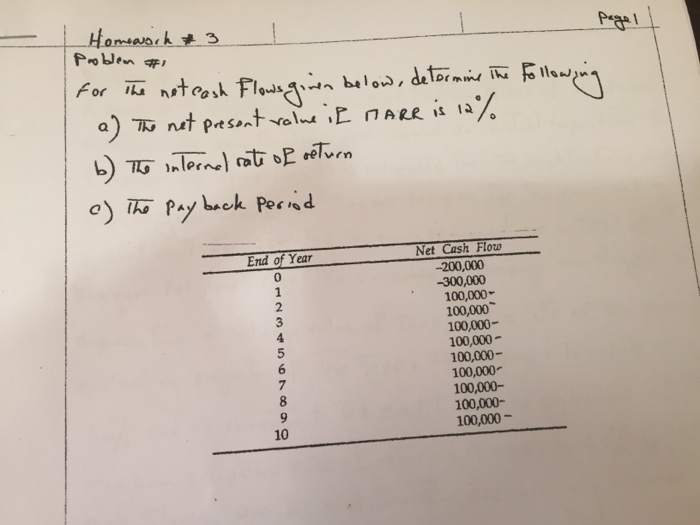 Page 1
Homework # 3
Problem #1
For The net cash Flows given below, determine The Following
a) The net present value if MARR is 12%
b) The internal rate of return
c) The Pay back Period
End of Year Net Cash Flow
0 -200,000
1 -300,000
2 100,000-
3 100,000-
4 100,000-
5 100,000-
6 100,000-
7 100,000-
8 100,000-
9 100,000-
10 100,000-